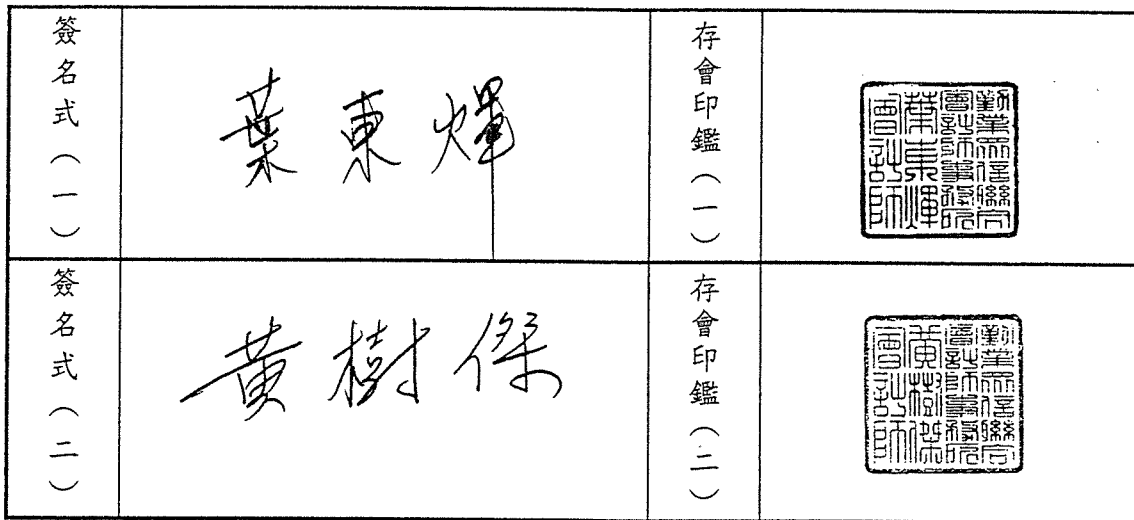 簽名式（一）
葉東燁
存會印鑑（一）
勤業眾信聯合
會計師事務所
葉東燁
會計師
簽名式（二）
黃樹傑
存會印鑑（二）
勤業眾信聯合
會計師事務所
黃樹傑
會計師